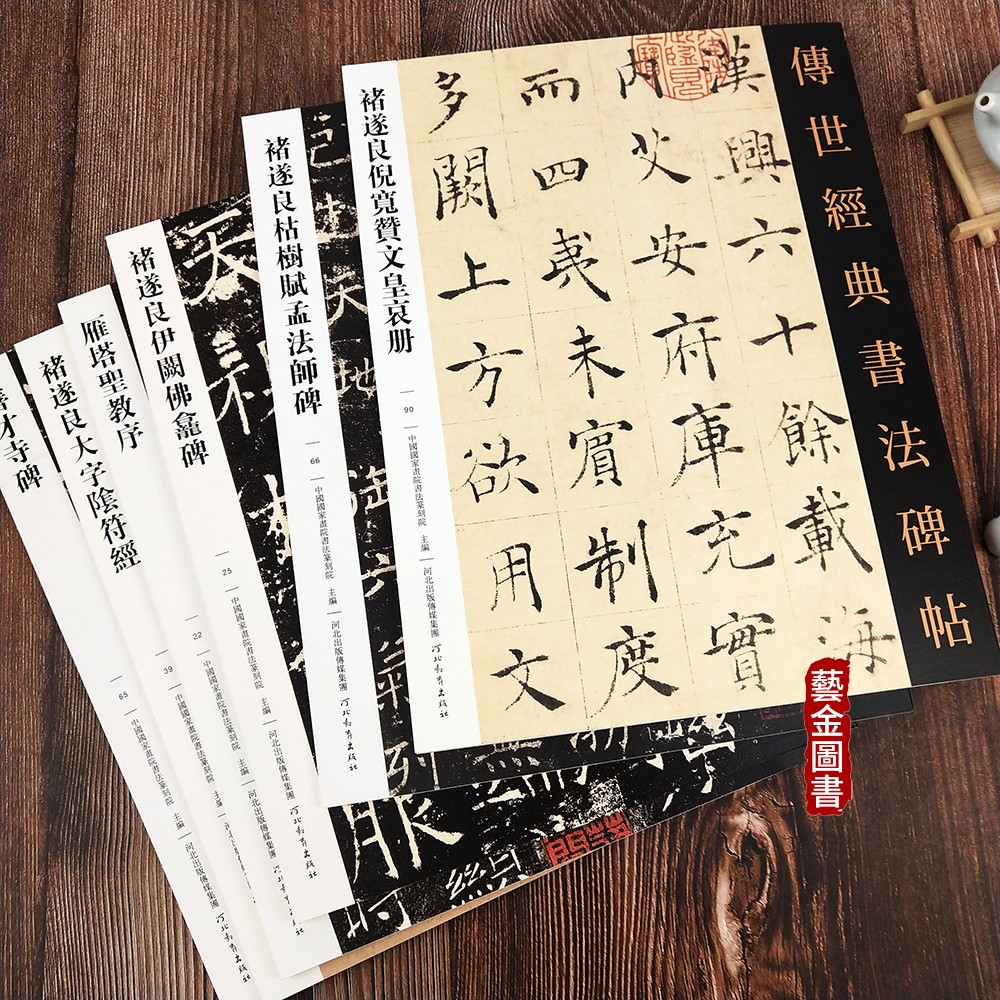 傳世經典書法碑帖
漢興六十餘載海
内艾安府庫充實
而四夷未賓制度
多闕上方欲用文
褚遂良倪寬贊文皇哀册
90 中國國家畫院書法篆刻院 主編 河北出版傳媒集團 河北教育出版社
褚遂良枯樹賦孟法師碑
66 中國國家畫院書法篆刻院 主編 河北出版傳媒集團 河北教育出版社
天地
褚遂良伊闕佛龕碑
25 中國國家畫院書法篆刻院 主編 河北出版傳媒集團 河北教育出版社
天
雁塔聖教序
22 中國國家畫院書法篆刻院 主編 河北出版傳媒集團 河北教育出版社
褚遂良大字陰符經
39 中國國家畫院書法篆刻院 主編
善才寺碑
65 中國國家畫院書法篆刻院 主編 河北出版傳媒集團 河北教育出版社
藝金圖書